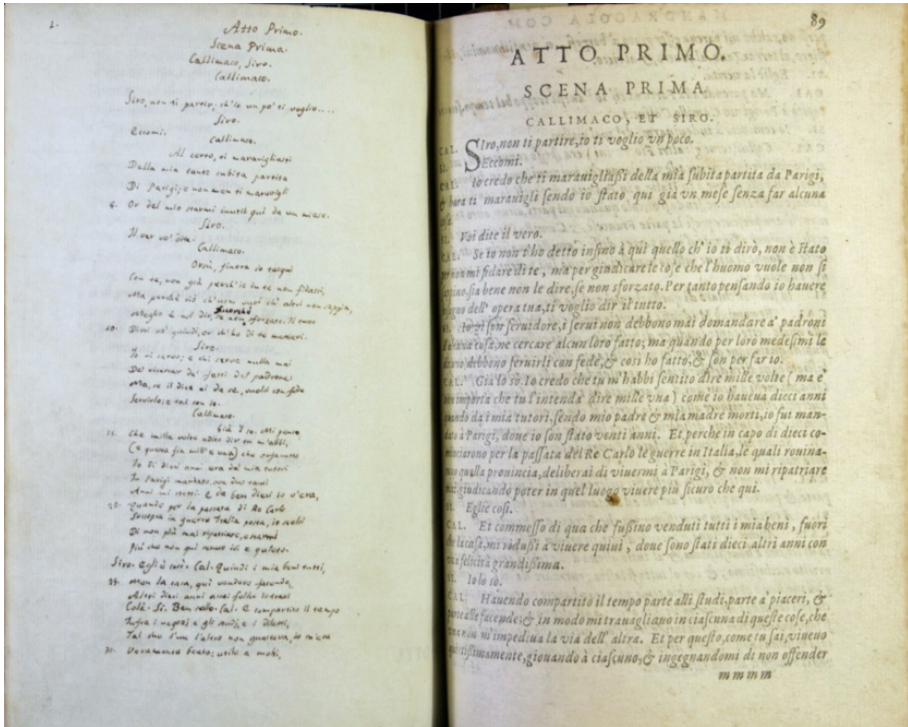 1.
Atto Primo.
Scena Prima.
Callimaco, Siro.
Callimaco.
Siro, non ti partir, ch'io un po' ti voglio....
Siro.
Eccomi.
Callimaco.
Al certo, ti maravigliasti
Della mia tanto subita partita
Di Parigi; e non men ti maravigli
5. Or del mio starmi inutil qui da un mese.
Siro.
Il ver vo' dite.
Callimaco.
Orsù, finora io tacqui
Con te, non già perch'io in te non fidassi,
Ma perchè ciò ch'uom vuol ch'altri non sappia,
meglio è nol dir,
10.
Siro.
Io vi servo; e chi serve nulla mai
De' fatti del padrone;
Ma, se il dice ei da se, vuolsi con fede
Servirlo; e tal son io.
Callimaco.
Già 'l so. Mi pare
15. Che mille volte udito dir tu m'abbi,
(e questa fia mill'e una) che orfanetto
Io di dieci anni era da' miei tutori
In Parigi mandato, ove due volte
Anni mi stetti: e da ben dieci io v'era,
20. Quando per la passata di Re Carlo
in guerra Italia posta, io scelsi
Di non più mai ripatriare,
Più che non qui
Siro. Egli è così. Cal. Quindi i mia beni tutti,
25. Meno la casa, qui vender facendo,
Altri dieci anni assai felice
Colà. Si. Ben sollo. Cal. E compartito il tempo
Infra i negozj e gli studi e i diletti,
Tal che l'un l'altro non guastava, io m'era
30. Veramente beato; utile a molti,
89
ATTO PRIMO.
SCENA PRIMA.
CALLIMACO, ET SIRO.
CAL. SIro, non ti partire, io ti voglio vn poco.
SI. Eccomi.
CAL. Io credo che ti marauigliaßi della mia subita partita da Parigi,
& hora ti marauigli sendo io stato qui già vn mese senza far alcuna
cosa.
SI. Voi dite il vero.
CAL. Se io non t'ho detto insino à qui quello ch'io ti dirò, non è stato
per non mi fidare di te, ma per giudicare le cose che l'huomo vuole non si
sappino, sia bene non le dire, se non sforzato. Per tanto pensando io hauere
bisogno dell'opera tua, ti voglio dir il tutto.
SI. Io vi son seruidore, i serui non debbono mai domandare a' padroni
d'alcuna cosa, ne cercare alcun loro fatto; ma quando per loro medesimi le
dicano, debbono seruirli con fede, & cosi ho fatto, & son per far io.
CAL. Già lo sò. Io credo che tu m'habbi sentito dire mille volte (ma è
non importa che tu l'intenda dire mille vna) come io haueua dieci anni
quando da i mia tutori, sendo mio padre & mia madre morti, io fui man-
dato à Parigi, doue io son stato venti anni. Et perche in capo di dieci co-
minciorono per la passata del Re Carlo le guerre in Italia, le quali rouina-
rono quella prouincia, deliberai di viuermi à Parigi, & non mi ripatriare
mai, giudicando poter in quel luogo viuere più sicuro che qui.
SI. Egli e cosi.
CAL. Et commesso di qua che fußino venduti tutti i mia beni, fuori
che la casa, mi ridußi à viuere quiui, doue sono stati dieci altri anni con
vna felicità grandißima.
SI. Io lo so.
CAL. Hauendo compartito il tempo parte alli studi, parte a' piaceri, &
parte alle facende; & in modo mi trauagliauo in ciascuna di queste cose, che
vna non m'impediua la via dell'altra. Et per questo, come tu sai, viueuo
quietißimamente, giouando à ciascuno, & ingegnandomi di non offender
mmmm